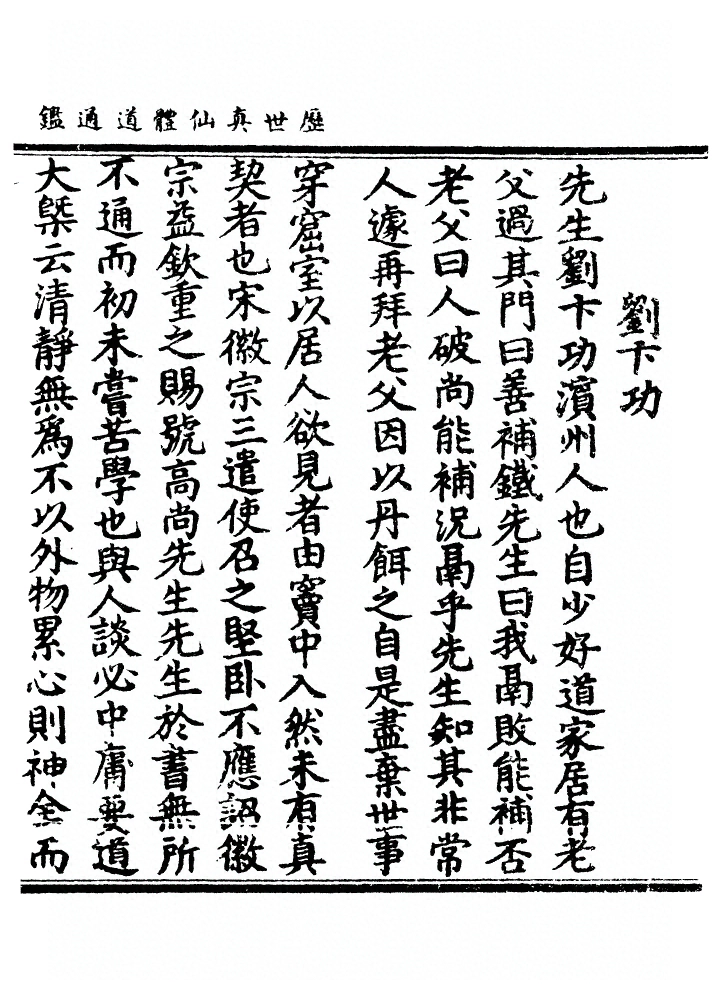 歷世真仙體道通鑑
劉卞功
先生劉卞功濱州人也自少好道家居有老
父過其門曰善補鐵先生曰我鬲敗能補否
老父曰人破尚能補況鬲乎先生知其非常
人遽再拜老父因以丹餌之自是盡棄世事
穿窟室以居人欲見者由竇中入然未有真
契者也宋徽宗三遣使召之堅卧不應詔徽
宗益欽重之賜號高尚先生先生於書無所
不通而初未嘗苦學也與人談必中庸要道
大槩云清靜無爲不以外物累心則神全而